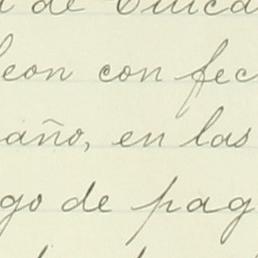 de Chica
leon con fec
año, en las
go de pag